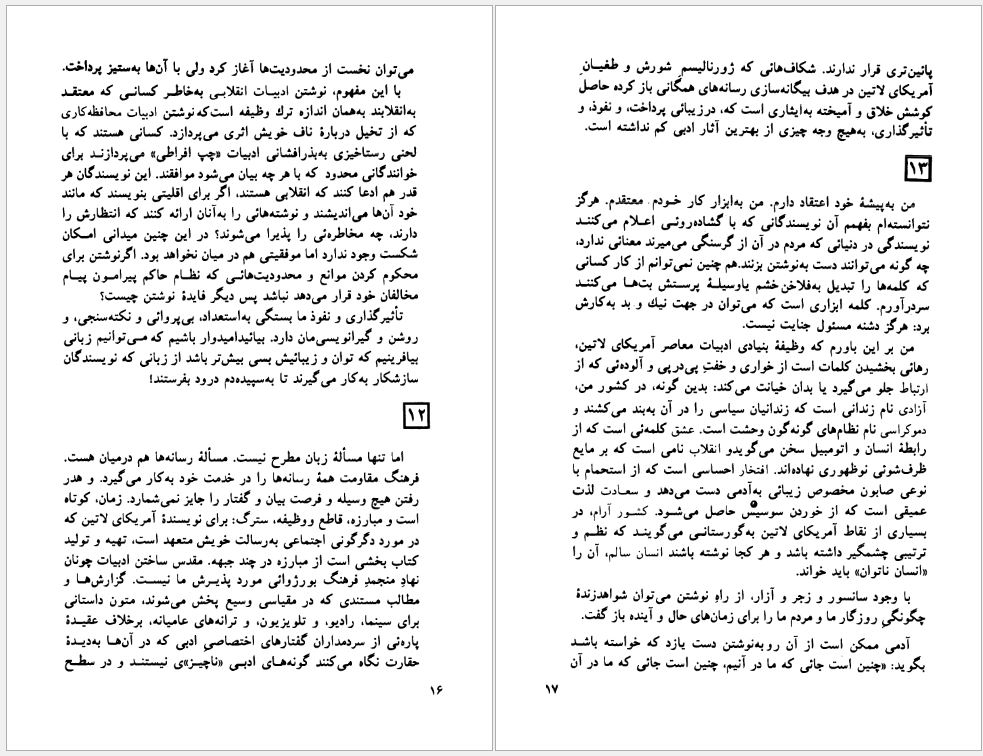 می‌توان نخست از محدودیت‌ها آغاز کرد ولی با آن‌ها به‌ستیز پرداخت.
با این مفهوم، نوشتن ادبیات انقلابی به‌خاطر کسانی که معتقد
به‌انقلابند به‌همان اندازه ترك وظیفه است‌که‌نوشتن ادبیات محافظه‌کاری
که از تخیل دربارهٔ ناف خویش اثری می‌پردازد. کسانی هستند که با
لحنی رستاخیزی به‌بذرافشانی ادبیات «چپ افراطی» می‌پردازند برای
خوانندگانی محدود که با هر چه بیان می‌شود موافقند. این نویسندگان هر
قدر هم ادعا کنند که انقلابی هستند، اگر برای اقلیتی بنویسند که مانند
خود آن‌ها می‌اندیشند و نوشته‌هائی را به‌آنان ارائه کنند که انتظارش را
دارند، چه مخاطره‌ئی را پذیرا می‌شوند؟ در این چنین میدانی امـکان
شکست وجود ندارد اما موفقیتی هم در میان نخواهد بود. اگرنوشتن برای
محکوم کردن موانع و محدودیت‌هائـی که نظـام حاکم پیرامـون پیـام
مخالفان خود قرار می‌دهد نباشد پس دیگر فایدهٔ نوشتن چیست؟
تأثیرگذاری و نفوذ ما بستگی به‌استعداد، بی‌پروائی و نکته‌سنجی، و
روشن و گیرانویسی‌مان دارد. بیائیدامیدوار باشیم که مـی‌توانیم زبانی
بیافرینیم که توان و زیبائیش بسی بیش‌تر باشد از زبانی که نویسندگان
سازشکار به‌کار می‌گیرند تا به‌سپیده‌دم درود بفرستند!
۱۲
اما تنها مسألهٔ زبان مطرح نیست. مسألهٔ رسانه‌ها هم درمیان هست.
فرهنگ مقاومت همهٔ رسانه‌ها را در خدمت خود به‌کار می‌گیرد. و هدر
رفتن هیچ وسیله و فرصت بیان و گفتار را جایز نمی‌شمارد. زمان، کوتاه
است و مبارزه، قاطع ووظیفه، سترگ: برای نویسندهٔ آمریکای لاتین که
در مورد دگرگونی اجتماعی به‌رسالت خویش متعهد است، تهیه و تولید
کتاب بخشی است از مبارزه در چند جبهه. مقدس ساختن ادبیات چونان
نهادِ منجمدِ فرهنگ بورژوائی مورد پذیـرش ما نیسـت. گزارش‌هـا و
مطالب مستندی که در مقیاسی وسیع پخش می‌شوند، متون داستانی
برای سینما، رادیو، و تلویزیون، و ترانه‌های عامیانه، برخلاف عقیـدهٔ
پاره‌ئی از سردمداران گفتارهای اختصاصیِ ادبی که در آن‌هـا به‌دیـدهٔ
حقارت نگاه می‌کنند گونه‌هـای ادبـی «ناچیز»ی نیستنـد و در سطـح
۱۶
پائین‌تری قرار ندارند. شکاف‌هائی که ژورنالیسمِ شورش و طغیـان
آمریکای لاتین در هدف بیگانه‌سازی رسانه‌های همگانی باز کرده حاصل
کوشش خلاق و آمیخته به‌ایثاری است که، درزیبائی پرداخت، و نفوذ، و
تأثیرگذاری، به‌هیچ وجه چیزی از بهترین آثار ادبی کم نداشته است.
۱۳
من به‌پیشهٔ خود اعتقاد دارم. من به‌ابزار کار خـودم معتقدم. هرگز
نتوانسته‌ام بفهمم آن نویسندگانی که با گشاده‌روئـی اعـلام می‌کننـد
نویسندگی در دنیائی که مردم در آن از گرسنگی می‌میرند معنائی ندارد،
چه گونه می‌توانند دست به‌نوشتن بزنند.هم چنین نمی‌توانم از کار کسانی
که کلمه‌ها را تبدیل به‌فلاخن‌خشم یاوسیلهٔ پرستش بت‌هـا می‌کننـد
سردرآورم. کلمه ابزاری است که می‌توان در جهت نیك و بد به‌کارش
برد: هرگز دشنه مسئول جنایت نیست.
من بر این باورم که وظیفهٔ بنیادی ادبیات معاصر آمریکای لاتین،
رهائی بخشیدن کلمات است از خواری و خفتِ پی‌درپی و آلوده‌ئی که از
ارتباط جلو می‌گیرد یا بدان خیانت می‌کند: بدین گونه، در کشور من،
آزادی نام زندانی است که زندانیان سیاسی را در آن به‌بند می‌کشند و
دموکراسی نام نظام‌های گونه‌گون وحشت است. عشق کلمه‌ئی است که از
رابطهٔ انسان و اتومبیل سخن می‌گویدو انقلاب نامی است که بر مایع
ظرف‌شوئی نوظهوری نهاده‌اند. افتخار احساسی است که از استحمام با
نوعی صابون مخصوص زیبائی به‌آدمی دست می‌دهد و سعادت لذت
عمیقی است که از خوردن سوسیس حاصل می‌شـود. کشـور آرام، در
بسیاری از نقاط آمریکای لاتین به‌گورستانـی می‌گوینـد که نظـم و
ترتیبی چشمگیر داشته باشد و هر کجا نوشته باشند انسان سالم، آن را
«انسان ناتوان» باید خواند.
با وجود سانسور و زجر و آزار، از راهِ نوشتن می‌توان شواهدزندهٔ
چگونگیِ روزگار ما و مردم ما را برای زمان‌های حال و آینده باز گفت.
آدمی ممکن است از آن روبه‌نوشتن دست یازد که خواسته باشد
بگوید: «چنین است جائی که ما در آنیم، چنین است جائی که ما در آن
۱۷